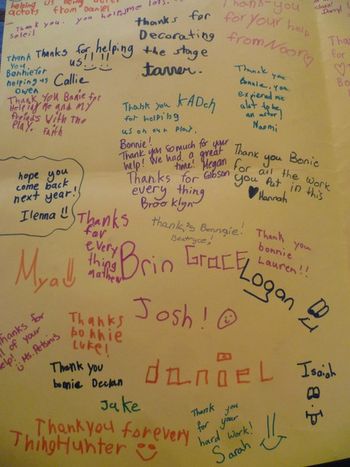 helping us being better
actors from Daniel
Thank you. you help me lots.
Soleil
thanks for
Decorating
the stage
Tanner.
Thank-you
for your help
from Noor
Thank
You
Bonnie for
helping us
Owen
Thanks for helping
us!!
Callie
Thank you Bonie for
Helping me and my
friends With the
Play.
Faith
Thank you
for helping
us on our play.
KADEN
Thank you
Bonnie, you
to be an
actor!
Naomi
Bonnie!
Thank you so much for your
help! We had a great
time! Megan
Thanks for Gibson
every thing
Brooklyn
Thank you Bonie
for all the work
you Put in this
Hannah
hope you
come back
next year!
Ilenna!!
Thanks
for
every
thing
Mathew
thanks Bonngie!
Beatryce!
Thank you
bonnie
Lauren!!
Mya!!
Brin
GRACE
Logan
Josh!
Thanks for
all of your
help!
Ms. Antonis
Thanks
bonnie
Luke!
Thank you
bonie Declan
daniel
Isaiah
Jake
Thankyou forevery
Thing Hunter
Thank
you
for your
hard work!
Sarah